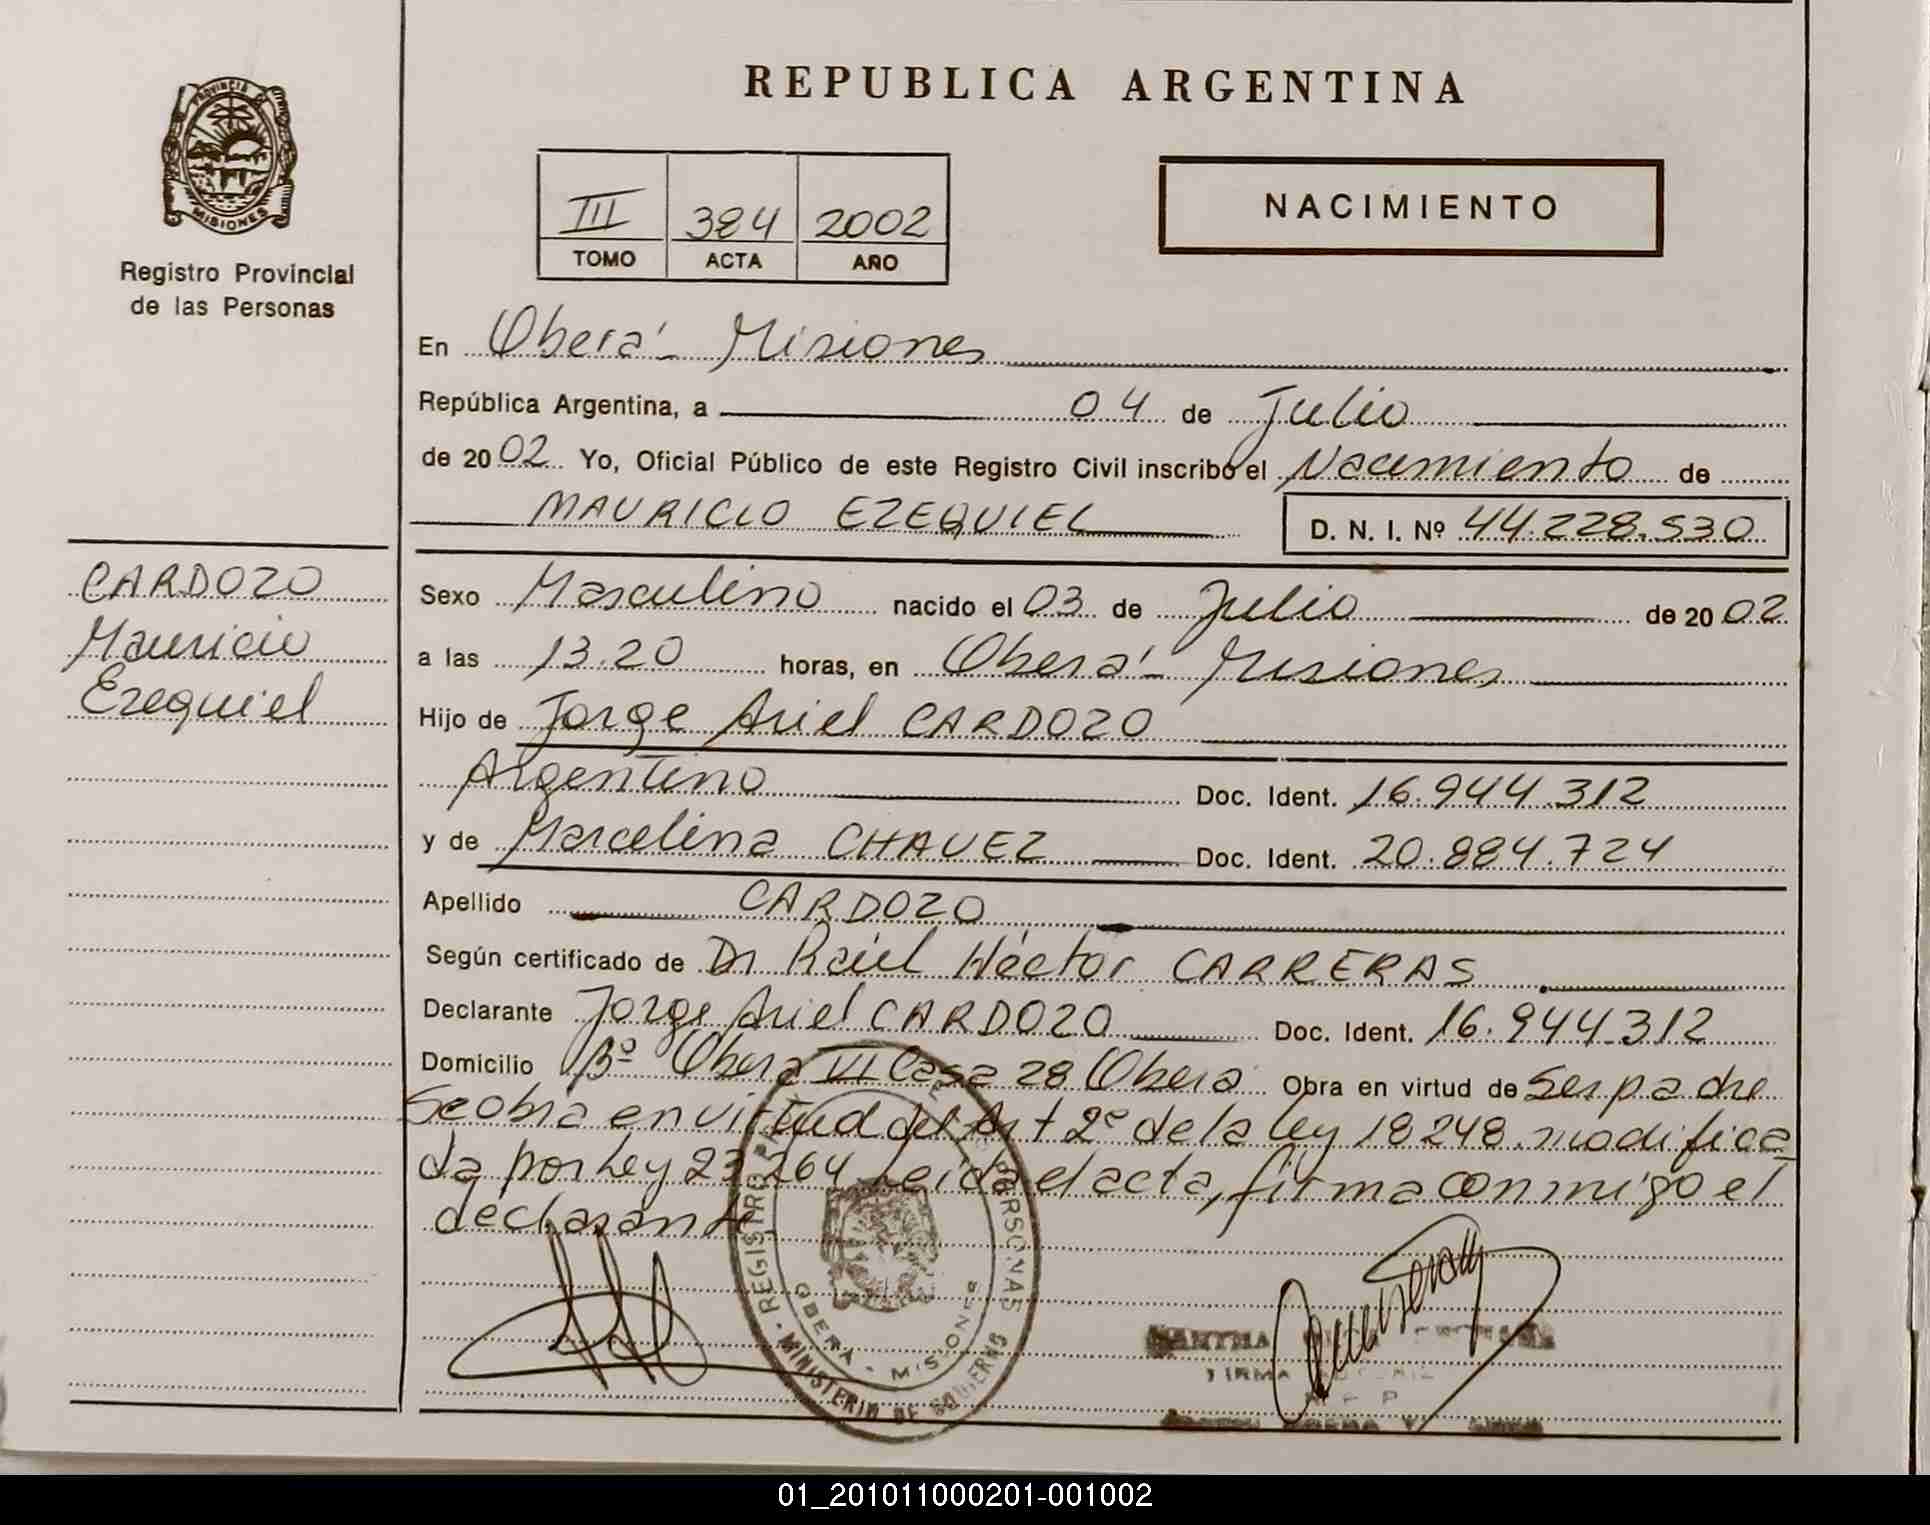 REPUBLICA ARGENTINA
PROVINCIA DE
MISIONES
Registro Provincial
de las Personas
III 384 2002
TOMO ACTA AÑO
NACIMIENTO
En Oberá - Misiones
República Argentina, a 04 de Julio
de 2002 Yo, Oficial Público de este Registro Civil inscribo el Nacimiento de
MAURICIO EZEQUIEL D. N. I. Nº 44.228.530
CARDOZO
Mauricio
Ezequiel
Sexo Masculino nacido el 03 de Julio de 2002
a las 13.20 horas, en Oberá - Misiones
Hijo de Jorge Ariel CARDOZO
Argentino Doc. Ident. 16.944.312
y de Marcelina CHAVEZ Doc. Ident. 20.884.724
Apellido CARDOZO
Según certificado de Dr Raúl Héctor CARRERAS
Declarante Jorge Ariel CARDOZO Doc. Ident. 16.944.312
Domicilio Bº Oberá VI Casa 28 Oberá Obra en virtud de Ser padre
Se obra en virtud del Art 2º de la ley 18248. modifica
da por Ley 23264 Leída el acta, firma conmigo el
declarante.
REGISTRO PERSONAS
OBERA - MISIONES
MINISTERIO DE GOBIERNO
FIRMA
01_201011000201-001002